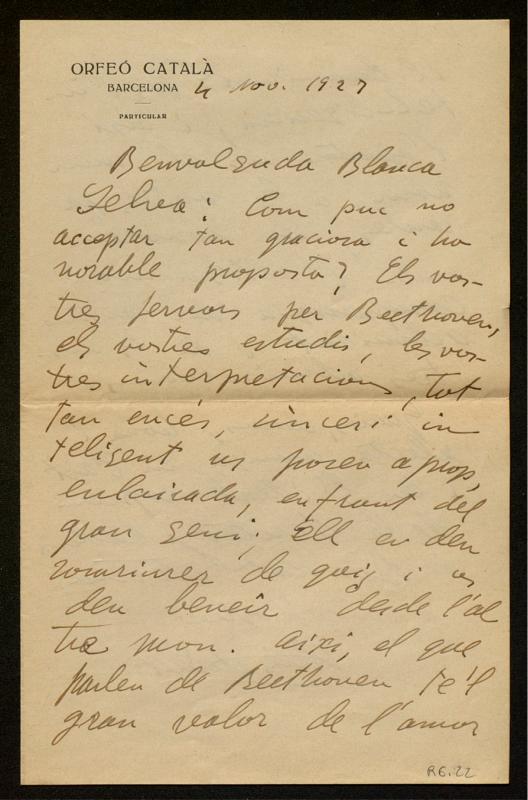 ORFEÓ CATALÀ
BARCELONA
PARTICULAR
4 Nov. 1927
Benvolguda Blanca
Selva: Com puc no
acceptar tan graciosa i ho
norable proposta? Els vos-
tres fervors per Beethoven,
els vostres estudis, les vos-
tres interpretacions, tot
tan encés, sincer i in
teligent us posen aprop,
enlairada, enfront del
gran geni; ell en deu
somriurer de goig i us
deu beneïr desde l'al
tre mon. Aixi, el que
parleu de Beethoven té'l
gran valor de l'amor
R6.22